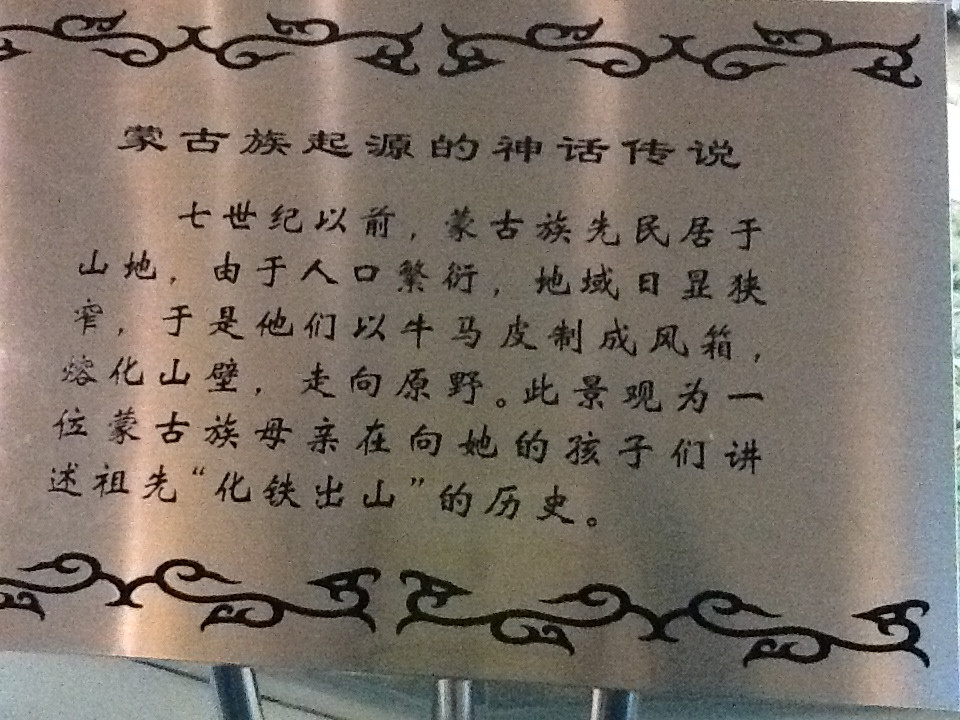 蒙古族起源的神话传说
七世纪以前，蒙古族先民居于
山地，由于人口繁衍，地域日显狭
窄，于是他们以牛马皮制成风箱，
熔化山壁，走向原野。此景观为一
位蒙古族母亲在向她的孩子们讲
述祖先“化铁出山”的历史。